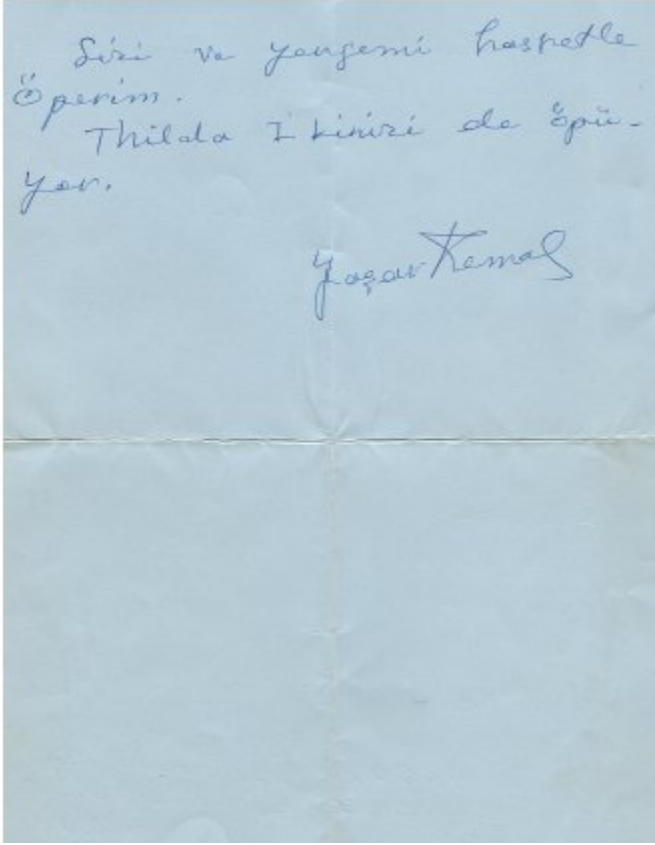 Sizi ve yengemi hasretle
Öperim.
Thilda İkinizi de öpü-
yor.
Yaşar Kemal